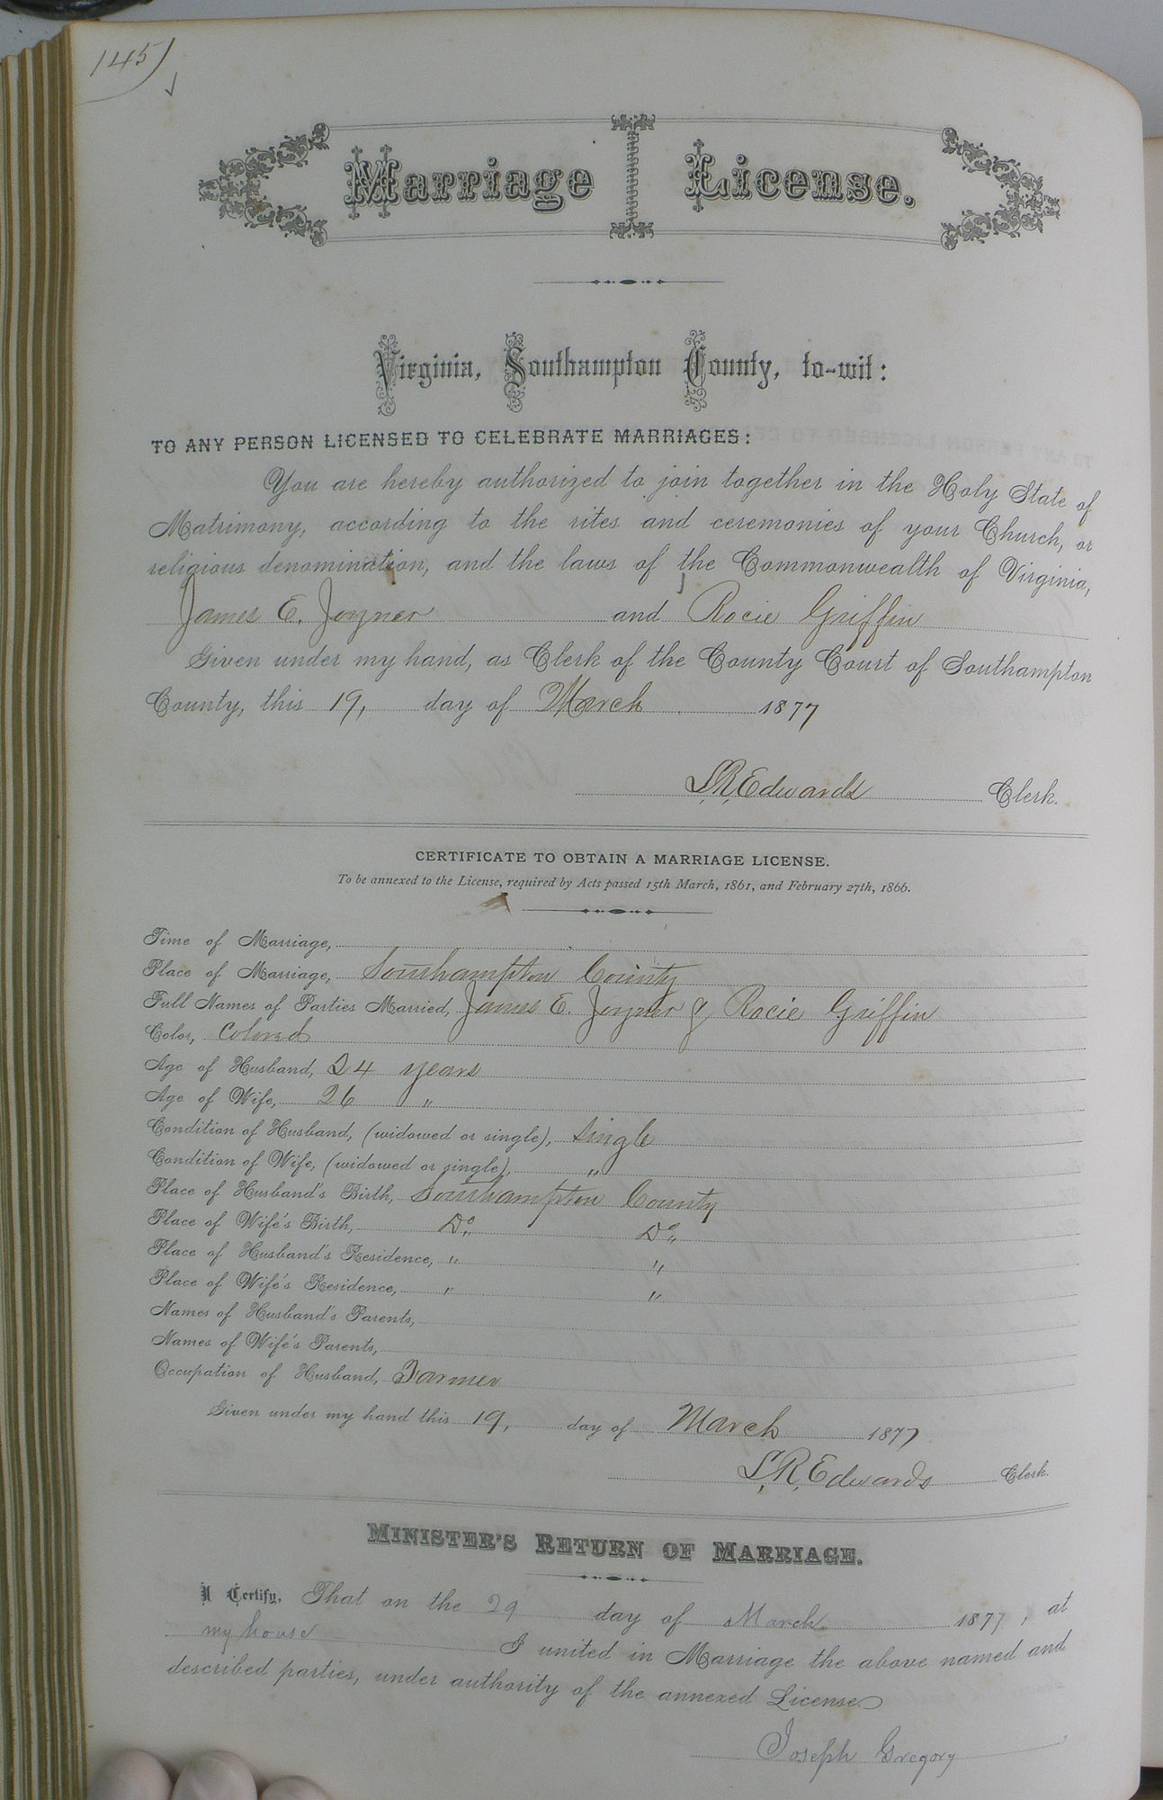 145)
Marriage License.
Virginia, Southampton County, to-wit:
TO ANY PERSON LICENSED TO CELEBRATE MARRIAGES:
You are hereby authorized to join together in the Holy State of
Matrimony, according to the rites and ceremonies of your Church, or
religious denomination, and the laws of the Commonwealth of Virginia,
James E. Joyner and Rocie Griffin
Given under my hand, as Clerk of the County Court of Southampton
County, this 19, day of March 1877
L.R. Edwards Clerk.
CERTIFICATE TO OBTAIN A MARRIAGE LICENSE.
To be annexed to the License, required by Acts passed 15th March, 1861, and February 27th, 1866.
Time of Marriage,
Place of Marriage, Southampton County
Full Names of Parties Married, James E. Joyner & Rocie Griffin
Color, Colored
Age of Husband, 24 years
Age of Wife, 26 "
Condition of Husband, (widowed or single), Single
Condition of Wife, (widowed or single), "
Place of Husband's Birth, Southampton County
Place of Wife's Birth, Do Do
Place of Husband's Residence, " "
Place of Wife's Residence, " "
Names of Husband's Parents,
Names of Wife's Parents,
Occupation of Husband, Farmer
Given under my hand this 19, day of March 1877
L.R. Edwards Clerk.
MINISTER'S RETURN OF MARRIAGE.
I Certify, That on the 29 day of March 1877, at
my house I united in Marriage the above named and
described parties, under authority of the annexed License
Joseph Gregory